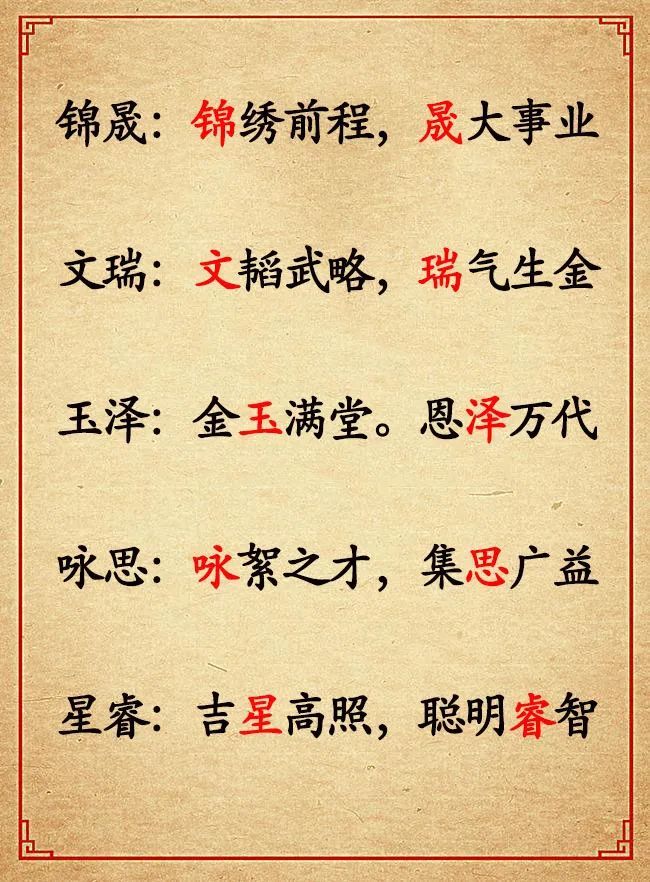 锦晟：锦绣前程，晟大事业
文瑞：文韬武略，瑞气生金
玉泽：金玉满堂。恩泽万代
咏思：咏絮之才，集思广益
星睿：吉星高照，聪明睿智